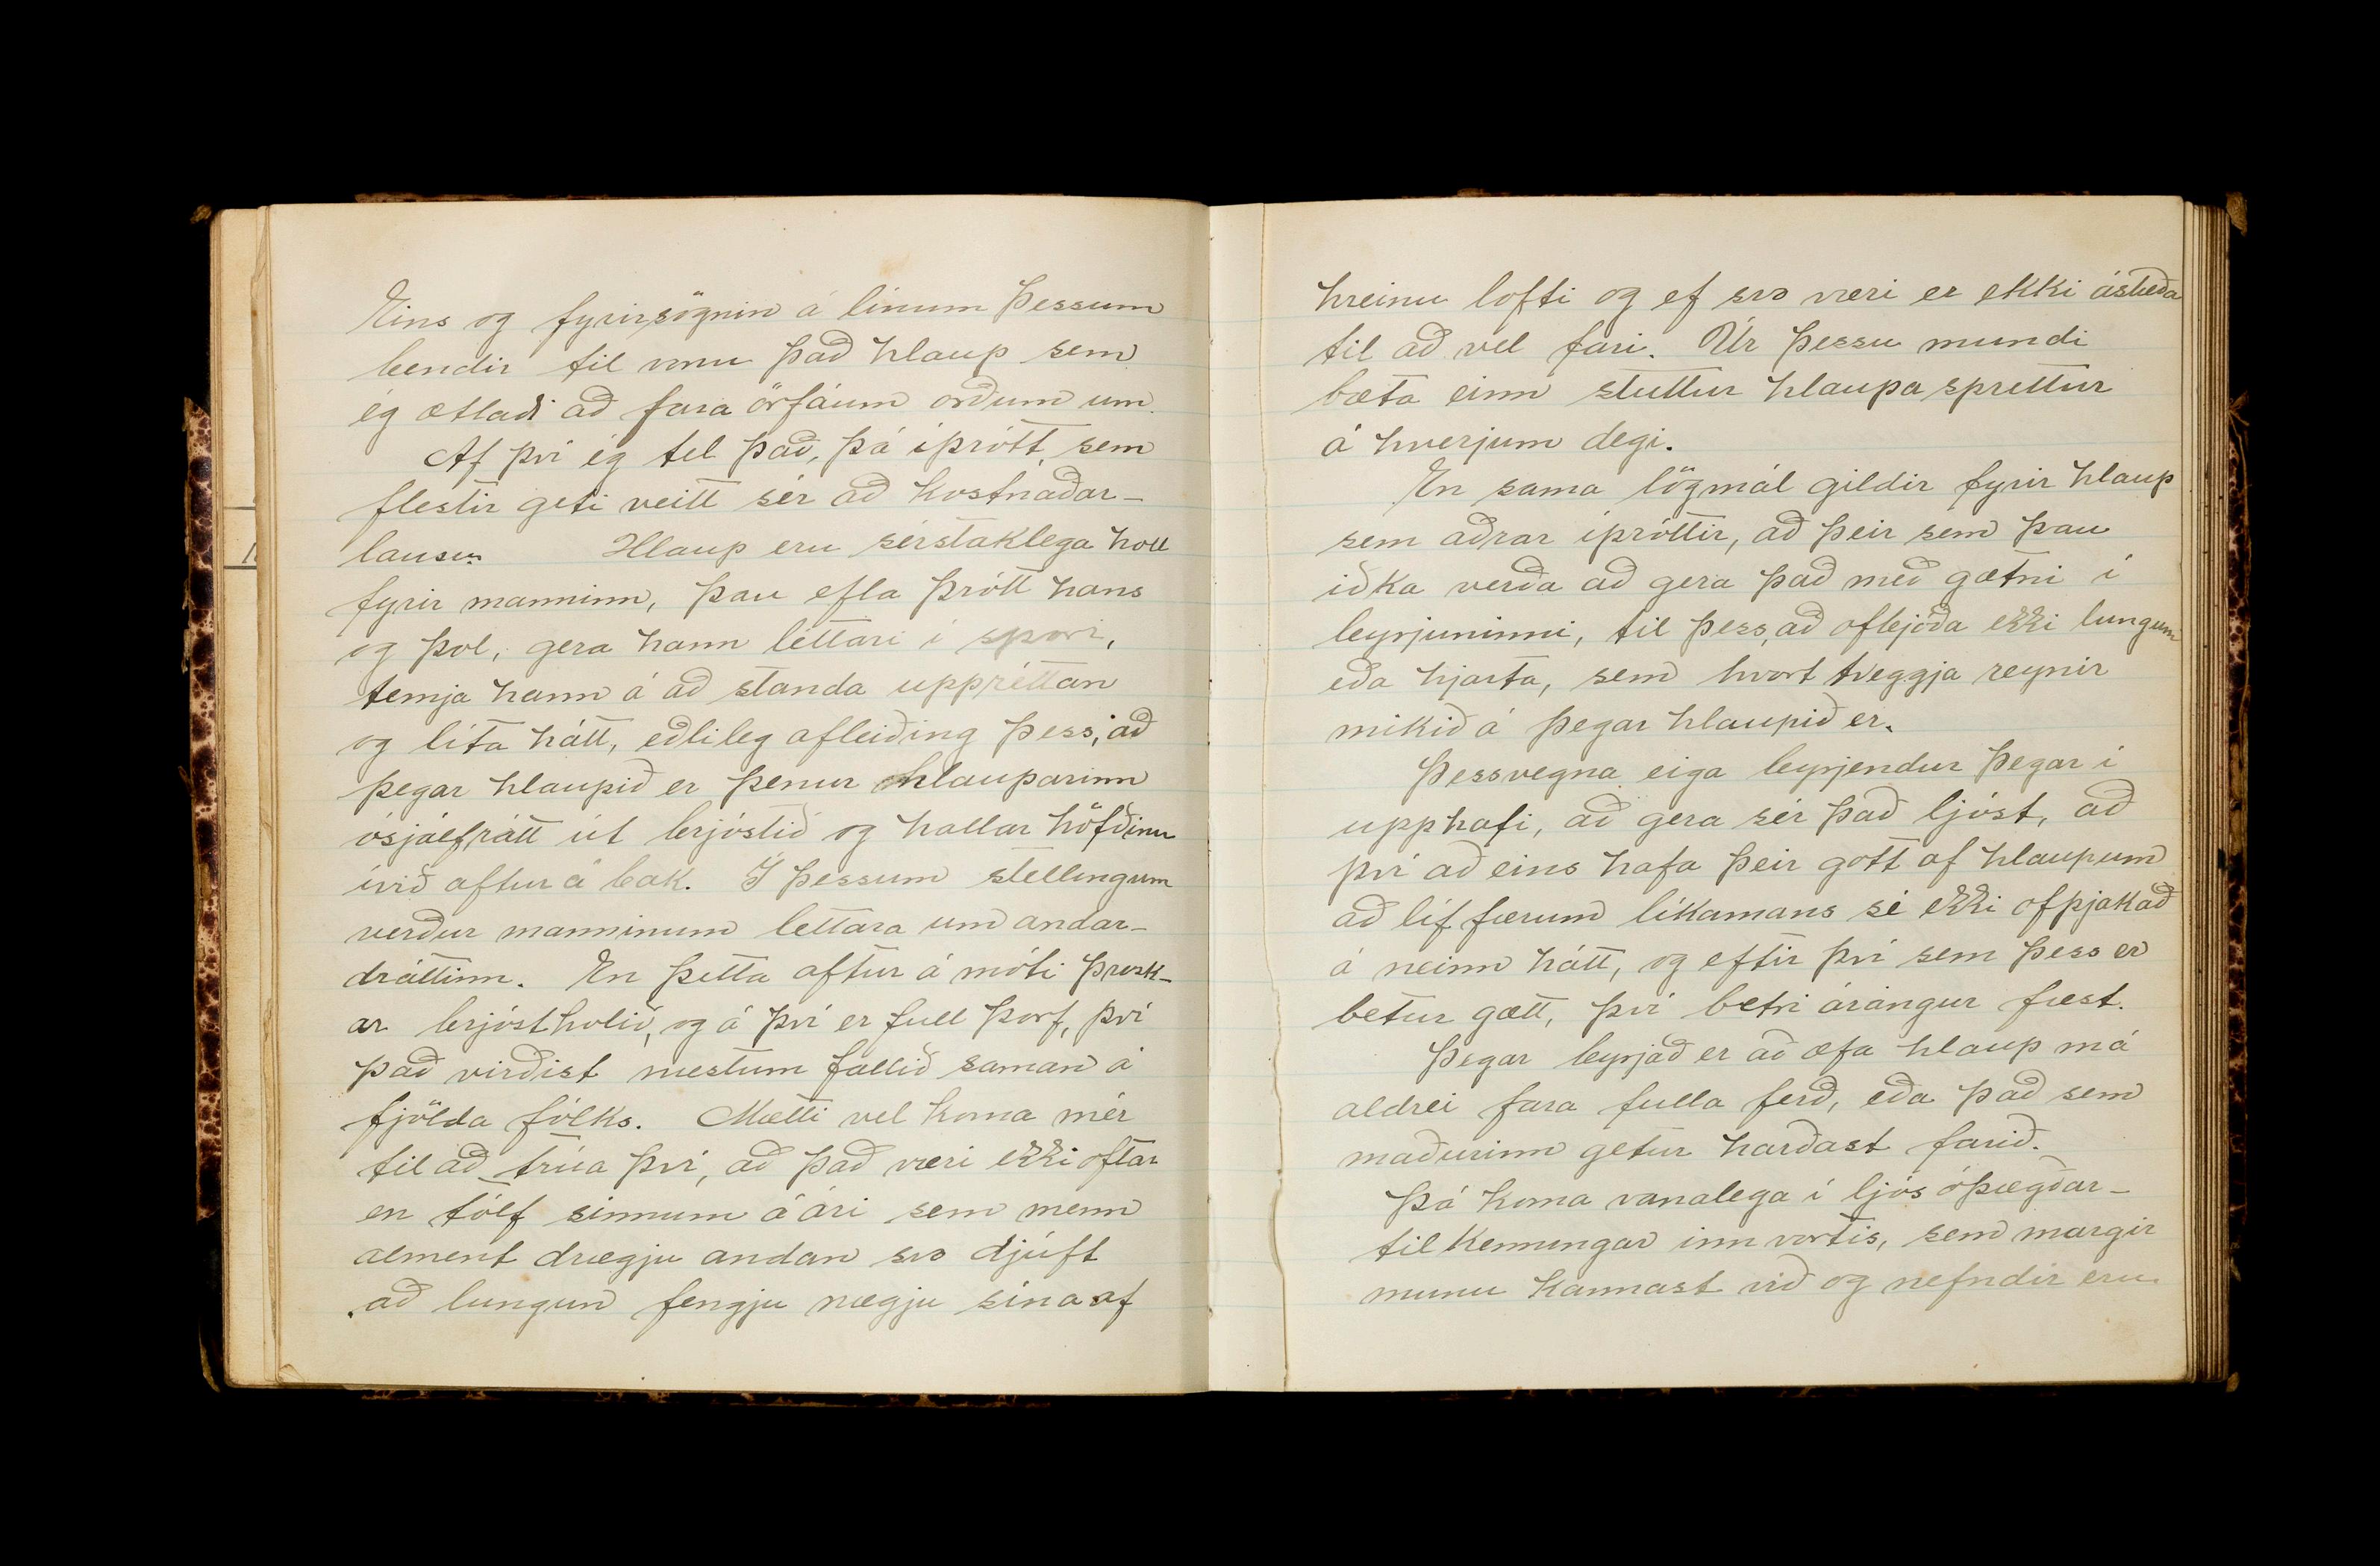 Eins og fyrirsögnin á línum þessum
bendir til mun það hlaup sem
ég ætlaði að fara örfáum orðum um.
Af því ég tel það, þá íþrótt, sem
flestir geti veitt sér að kostnaðar-
lausu. Hlaup eru sérstaklega holl
fyrir manninn, þau efla þrótt hans
og þol, gera hann léttari í spori,
temja hann á að standa uppréttan
og líta hátt, eðlileg afleiðing þess, að
þegar hlaupið er þenur hlauparinn
ósjálfrátt út brjóstið og hallar höfðinu
ívið aftur á bak. Í þessum stellingum
verður manninum lettara um andar-
dráttinn. En þetta aftur á móti þrosk-
ar brjóstholið, og á því er full þörf, því
það virðist mestum fallið saman á
fjölda fólks. Mætti vel koma mér
til að trúa því, að það væri ekki oftar
en tólf sinnum á ári sem menn
alment drægju andan svo djúft
að lungun fengju nægju sína af
hreinu lofti og ef svo væri er ekki ástæða
til að vel fari. Úr þessu mundi
bæta einn stuttur hlaupa sprettur
á hverjum degi.
En sama lögmál gildir fyrir hlaup
sem aðrar íþróttir, að þeir sem þau
iðka verða að gera það með gætni í
byrjuninni, til þess, að ofbjóða ekki lungum
eða hjarta, sem hvort tveggja reynir
mikið á þegar hlaupið er.
Þessvegna eiga byrjendur þegar í
upphafi, að gera sér það ljóst, að
því að eins hafa þeir gott af hlaupum
að líffærum líkamans sé ekki ofþjakað
á neinn hátt, og eftir því sem þess er
betur gætt, því betri árángur fæst.
Þegar byrjað er að æfa hlaup má
aldrei fara fulla ferð, eða það sem
maðurinn getur harðast farið.
Þá koma vanalega í ljós óþægðar-
til kenningar inn vortis, sem margir
munu kannast við og nefndir eru